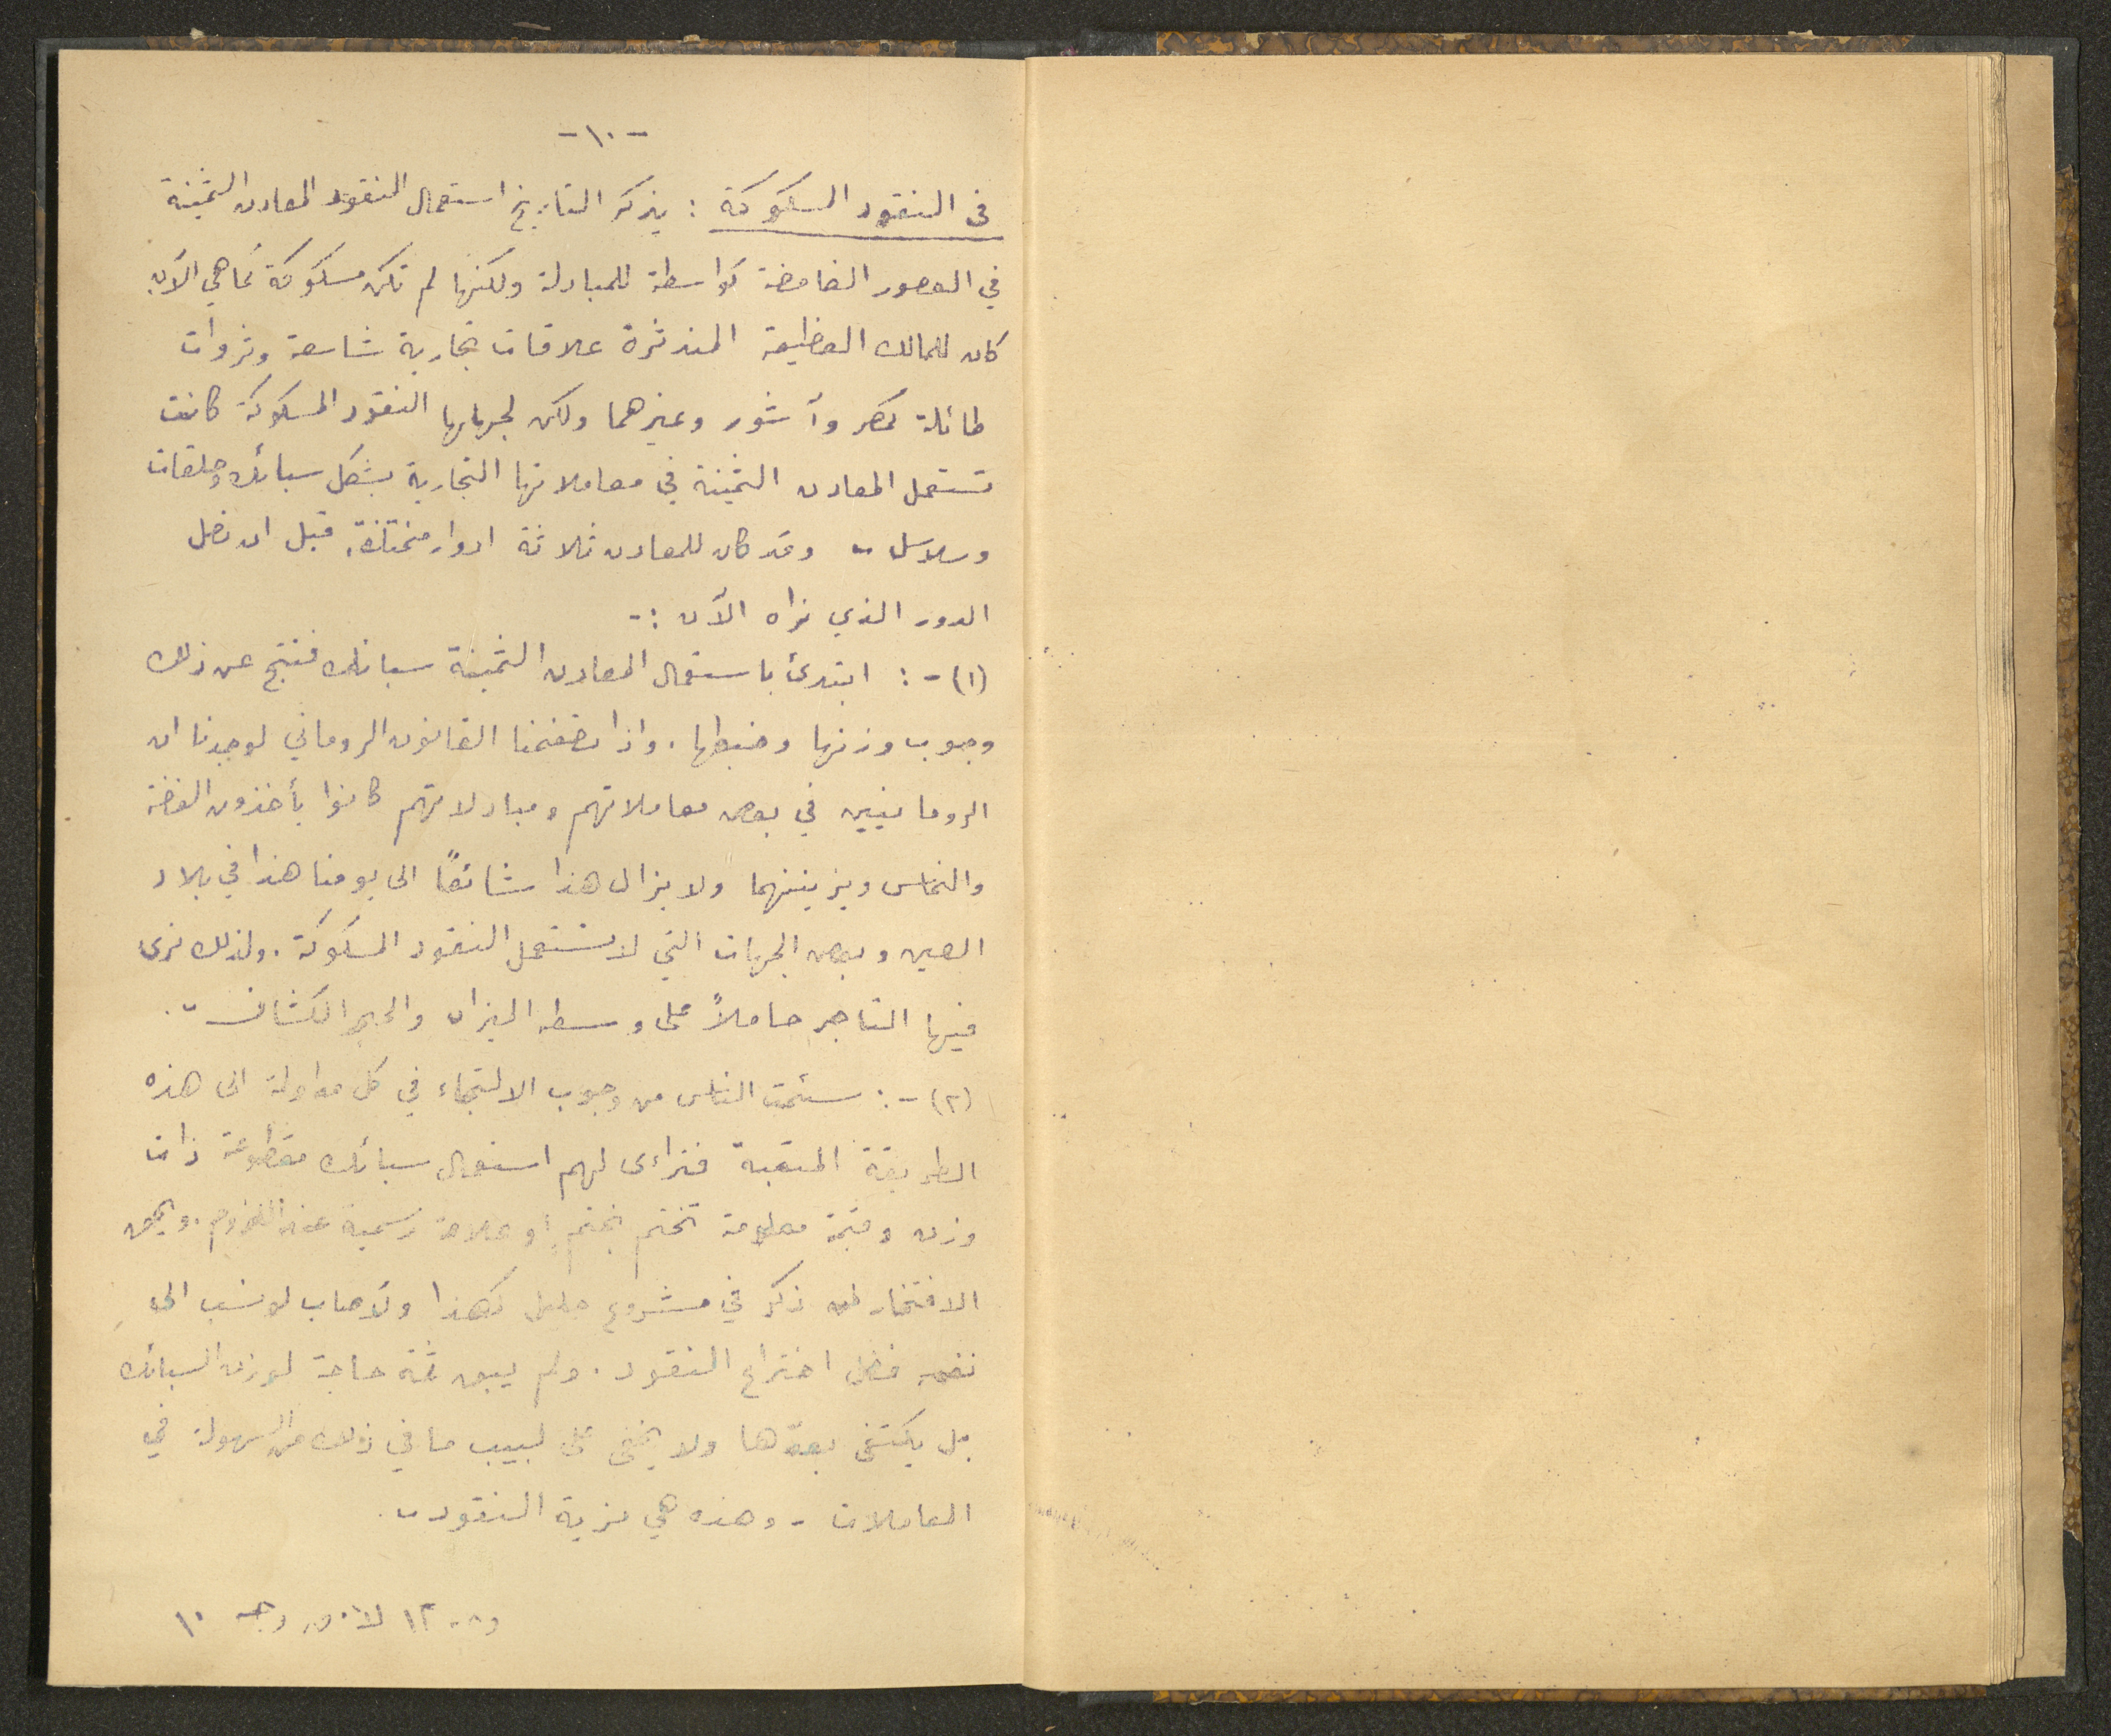 -١٠-
في النقود المسكوكة : يذكر التاريخ استعمال النقود المعادن الثمينة
في العصور الغامضة كواسطة للمبادلة ولكنها لم تكن مسكوكة كما هي الآن
كان للممالك العظيمة المندثرة علاقات تجارية شاسعة وثروات
طائلة كمصر وآشور وغيرهما ولكن لجهلها النقود المسكوكة كانت
تستعمل المعادن الثمينة في معاملاتها التجارية بشكل سبائك وحلقات
وسلاسل - وقد كان للمعادن ثلاثة ادوار مختلفة قبل ان تصل
الدور الذي نراه الآن :-
(١) -: ابتدئ باستعمال المعادن الثمينة سبائك فنتج عن ذلك
وجوب وزنها وضبطها . واذا تصفحنا القانون الروماني لوجدنا ان
الرومانيين في بعض معاملاتهم ومبادلاتهم كانوا يأخذون الفضة
والنحاس ويزينونهما ولا يزال هذا شائعاً الى يومنا هذا في بلاد
الصين وبعض الجهات التي لا تستعمل النقود المسكوكة . ولذلك نرى
فيها التاجر حاملاً على وسطه الميزان والحجر الكشاف -.
(٢) -: سئمت الناس من وجوب الالتجاء في كل معاملة الى هذه
الطريقة المتعبة فتراءى لهم استعمال سبائك مقطوعة ذات
وزن وقيمة معلومة تختم بختم او علامة رسمية عند اللزوم . ويحق
الافتخار لمن ذكر في مشروع جليل كهذا ولأصاب لو نسب الى
نفسه فضل اختراع النقود . ولم يبق ثمة حاجة لوزن السبائك
بل يكتفى بعدّها ولا يخفى على لبيب ما في ذلك من السهولة في
المعاملات - وهذه هي مزية النقود -.
١٠